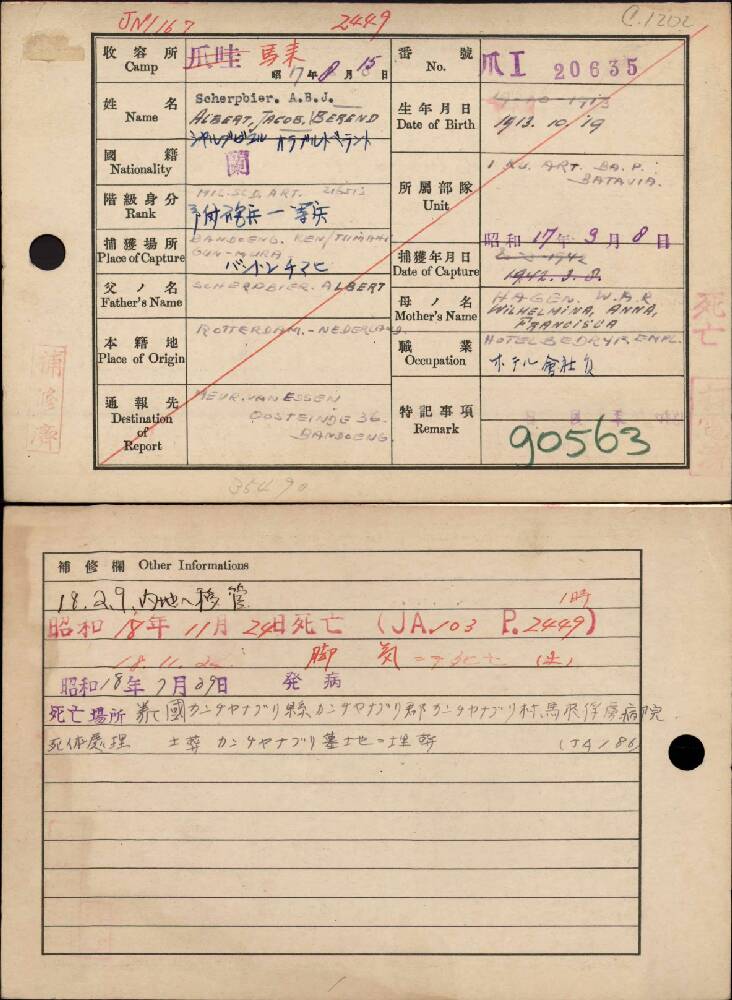 JN1167 2449 C.1202
收容所 Camp 爪哇 馬来
昭 17年 8月 15日
番號 No. 爪I 20635
姓名 Name Scherpbier. A.B.J.
ALBERT, JACOB, BEREND
生年月日 Date of Birth
1913. 10/19
國籍 Nationality 蘭
階級身分 Rank MIL. SLD. ART.
所屬部隊 Unit 1 ART. BA. P.
BATAVIA.
捕獲場所 Place of Capture BANDOENG.
バンドン チマヒ
捕獲年月日 Date of Capture 昭和 17年 3月 8日
1942. 3. 8.
父ノ名 Father's Name SCHERPBIER. ALBERT
母ノ名 Mother's Name HAGEN. W.A.F.
WILHELMINA, ANNA,
FRANCISCA
本籍地 Place of Origin ROTTERDAM. - NEDERLAND.
職業 Occupation HOTELBEDRYF. EMPL.
ホテル會社員
通報先 Destination of Report MEVR. VAN ESSEN
OOSTEINDE 36.
BANDOENG.
特記事項 Remark
90563
死亡
補修濟
35490
補修欄 Other Informations
18.2.9. 内地へ移管
昭和 18年 11月 24日死亡 (JA.103 P.2449)
18.11.24 脚気
昭和18年7月29日 発病
死亡場所 泰國カンチヤナブリ縣カンチヤナブリ郡カンチヤナブリ村馬来俘虜病院
死体處理 土葬 カンチヤナブリ墓地ニ埋葬 (JA/86)